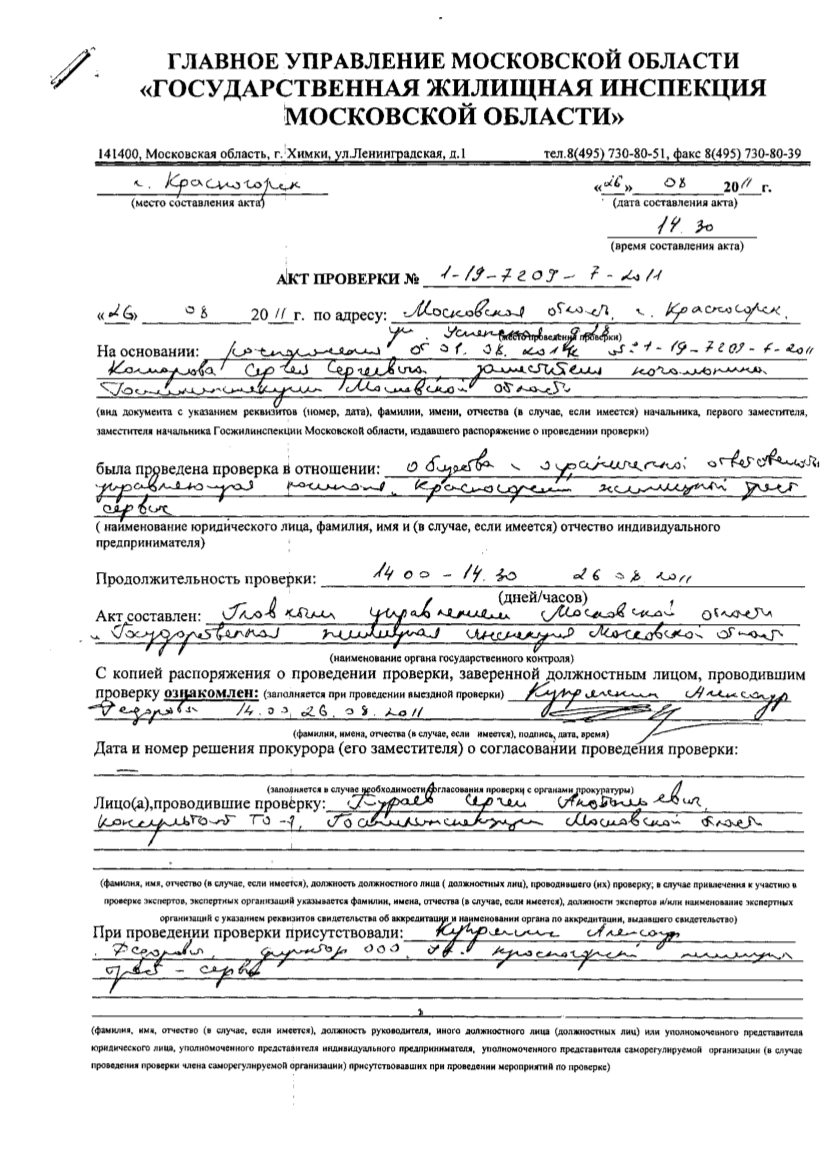 ГЛАВНОЕ УПРАВЛЕНИЕ МОСКОВСКОЙ ОБЛАСТИ
«ГОСУДАРСТВЕННАЯ ЖИЛИЩНАЯ ИНСПЕКЦИЯ
МОСКОВСКОЙ ОБЛАСТИ»
141400, Московская область, г. Химки, ул.Ленинградская, д.1 тел.8(495) 730-80-51, факс 8(495) 730-80-39
г. Красногорск «26» 08 2011 г.
(место составления акта) (дата составления акта)
14. 30
(время составления акта)
АКТ ПРОВЕРКИ № 1-19-7209-7-2011
«26» 08 2011 г. по адресу: Московская область, г. Красногорск,
ул Успенская д 28
(место проведения проверки)
На основании: распоряжения от 01. 08. 2011г № 1-19-7209-7-2011
Комарова Сергея Сергеевича, заместителя начальника
Госжилинспекции Московской области
(вид документа с указанием реквизитов (номер, дата), фамилии, имени, отчества (в случае, если имеется) начальника, первого заместителя,
заместителя начальника Госжилинспекции Московской области, издавшего распоряжение о проведении проверки)
была проведена проверка в отношении: общества с ограниченной ответственность
управляющая компания Красногорский жилищный трест
сервис
( наименование юридического лица, фамилия, имя и (в случае, если имеется) отчество индивидуального
предпринимателя)
Продолжительность проверки: 14 00 - 14. 30 26 08 2011
(дней/часов)
Акт составлен: Главным управлением Московской области
Государственная жилищная инспекция Московской области
(наименование органа государственного контроля)
С копией распоряжения о проведении проверки, заверенной должностным лицом, проводившим
проверку ознакомлен: (заполняется при проведении выездной проверки) Александр
Федорович 14.00, 26. 08. 2011
(фамилии, имена, отчества (в случае, если имеется), подпись, дата, время)
Дата и номер решения прокурора (его заместителя) о согласовании проведения проверки:
—
(заполняется в случае необходимости согласования проверки с органами прокуратуры)
Лицо(а),проводившие проверку: Тураев Сергей Анатольевич,
консультант ТО-7, Госжилинспекции Московской области
(фамилия, имя, отчество (в случае, если имеется), должность должностного лица ( должностных лиц), проводившего (их) проверку; в случае привлечения к участию в
проверке экспертов, экспертных организаций указывается фамилии, имена, отчества (в случае, если имеется), должности экспертов и/или наименование экспертных
организаций с указанием реквизитов свидетельства об аккредитации и наименовании органа по аккредитации, выдавшего свидетельство)
При проведении проверки присутствовали: Александр
Федорович, директор ООО, УК. Красногорский жилищный
трест - сервис
(фамилия, имя, отчество (в случае, если имеется), должность руководителя, иного должностного лица (должностных лиц) или уполномоченного представителя
юридического лица, уполномоченного представителя индивидуального предпринимателя, уполномоченного представителя саморегулируемой организации (в случае
проведения проверки члена саморегулируемой организации) присутствовавших при проведении мероприятий по проверке)